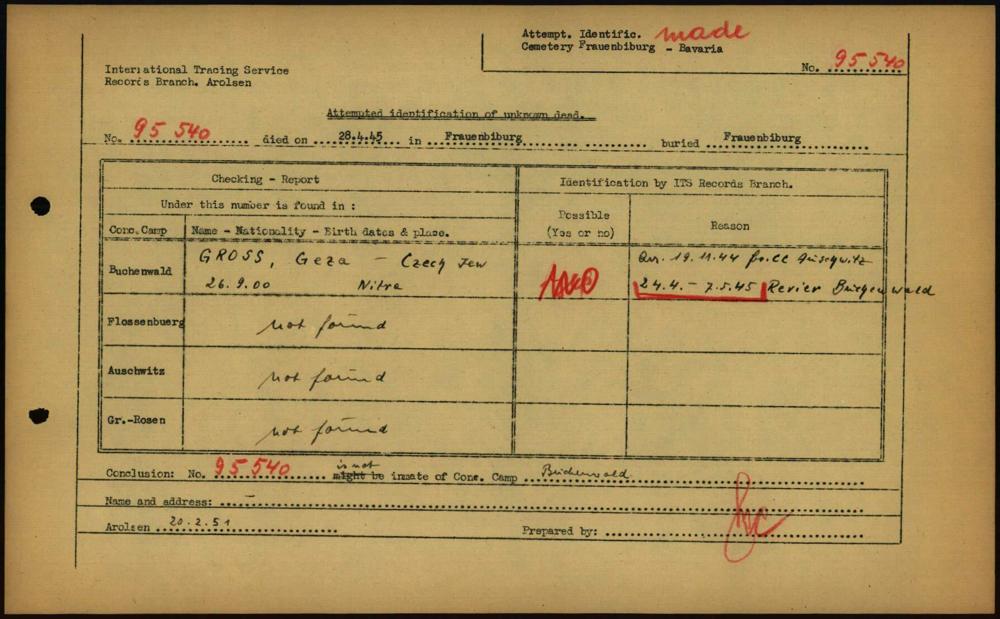 Attempt. Identific. made
Cemetery Frauenbiburg - Bavaria
No. 95 540
International Tracing Service
Records Branch. Arolsen
Attempted identification of unknown dead.
No. 95 540 died on 28.4.45 in Frauenbiburg buried Frauenbiburg
Checking - Report
Identification by ITS Records Branch.
Under this number is found in :
Possible
(Yes or no)
Reason
Conc. Camp
Name - Nationality - Birth dates & place.
Buchenwald
GROSS, Geza - Czech Jew
26.9.00 Nitra
19.11.44 Auschwitz
24.4. - 7.5.45 Revier
Flossenbuerg
not found
Auschwitz
not found
Gr.-Rosen
not found
Conclusion: No. 95 540 is not might be inmate of Conc. Camp Buchenwald
Name and address: -
Arolsen 20.2.51
Prepared by: